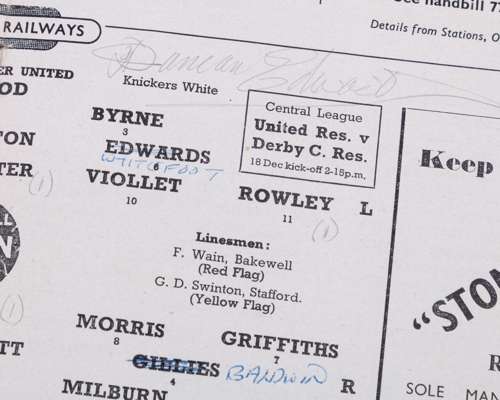 See handbill 77
RAILWAYS
Details from Stations, O
Duncan Edwards
Knickers White
ER UNITED
OOD
BYRNE
3
Central League
United Res. v
Derby C. Res.
18 Dec kick-off 2-15p.m.
Keep
TON
EDWARDS
6
WHITEFOOT
TER
(1)
VIOLLET
10
ROWLEY L
11
(1)
Linesmen:
F. Wain, Bakewell
(Red Flag)
G. D. Swinton, Stafford.
(Yellow Flag)
N
(1)
"STON
MORRIS
8
GRIFFITHS
7
TT
GILLIES BALDWIN R
4
MILBURN
R
SOLE MAN